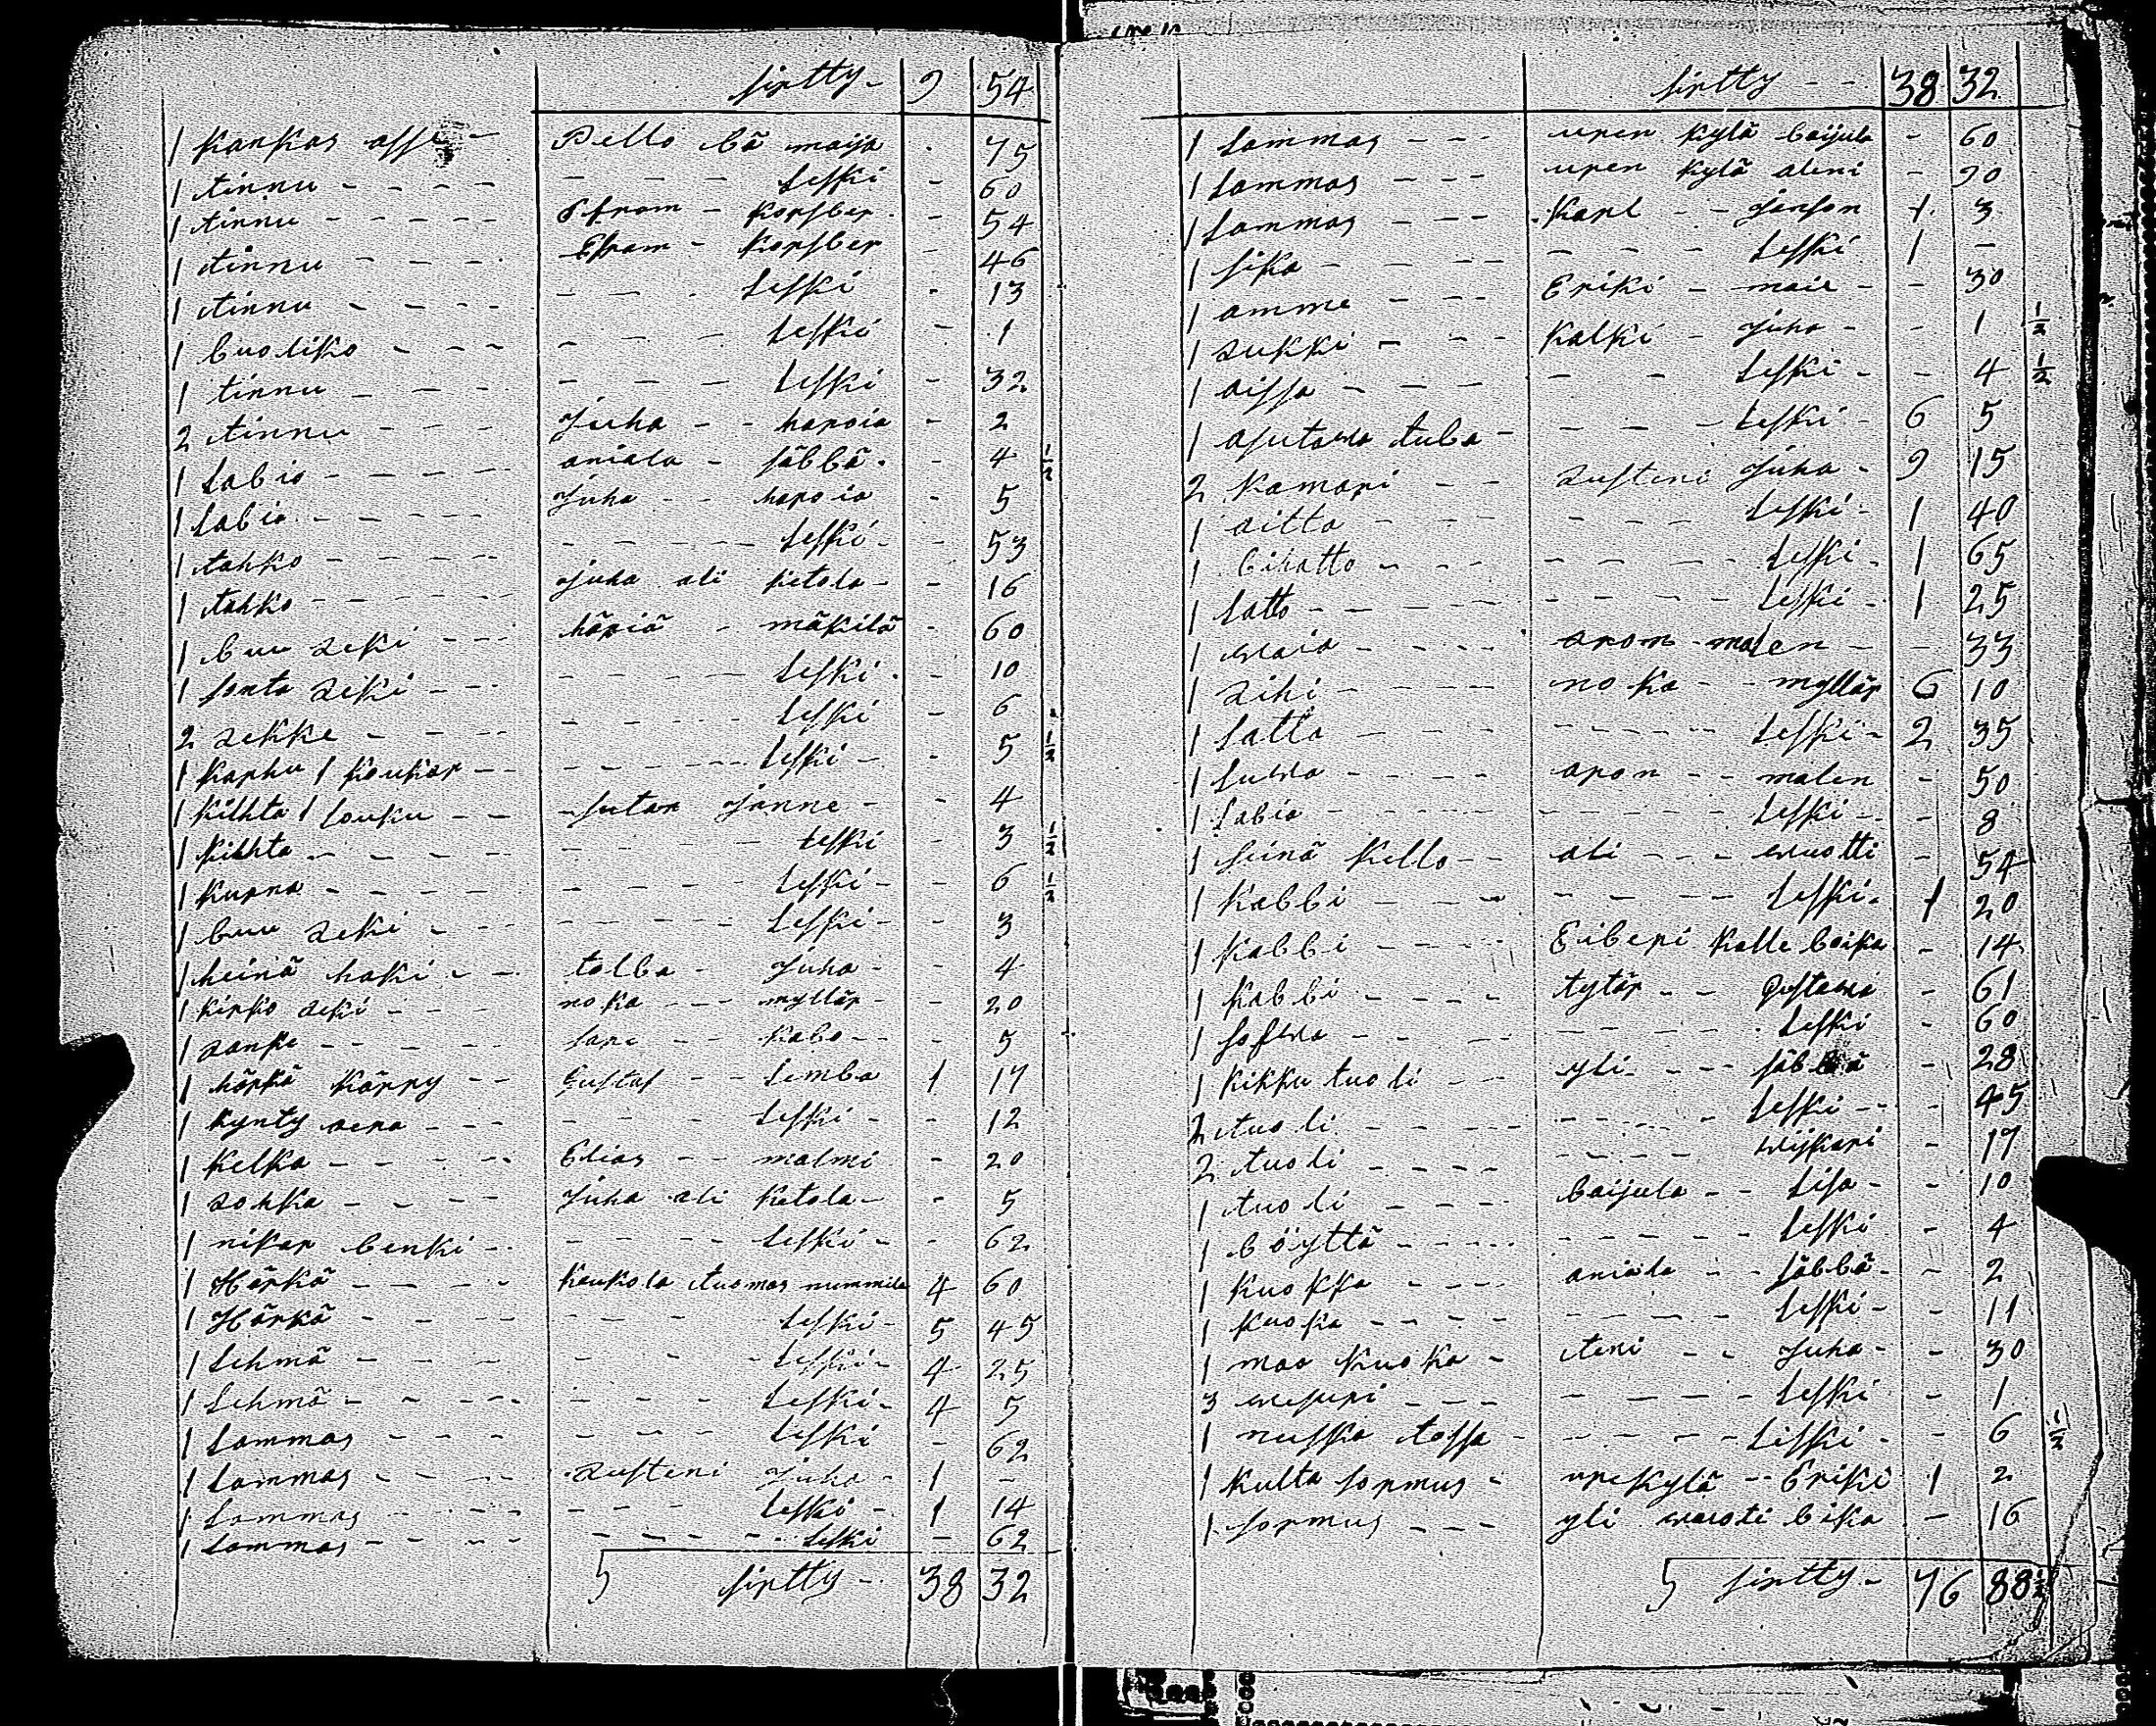 sirtty - 9 54
1 Kankas asse - Pello bä maija - 75
1 tinnu - - - - - - - Leski - 60
1 tinnu - - - - - Efram - Korsber - - 54
1 tinnu - - - - Efram - Korsber - 46
1 tinnu - - - - - - - Leski - 13
1 buoliko - - - - - - Leski - 1
1 tinnu - - - - - - Leski - 32
2 tinnu - - - Juha - - haroia - 2
1 Labio - - - - aniala - säbbä - - 4 1/2
1 Labio - - - - Juha - - haroia - 5
1 tahko - - - - - - - - - Leski - - 53
1 tahko - - - - - Juha ali ketola - - 16
1 buu zeki - - - häriä - mäkilä - 60
1 sonta zeki - - - - - - - Leski - - 10
2 zekke - - - - - - - - - - Leski - 6
1 Karhu 1 Koukar - - - - - - - Leski - - 5 1/2
1 Kihhta 1 Louku - - - Sutar Janne - - 4
1 Kihhta - - - - - - - - - Leski - 3 1/2
1 Kurna - - - - - - - - - Leski - - 6 1/2
1 buu zeki - - - - - - - - Leski - 3
1 heinä haki - - tolba - Juha - - 4
1 kirko zeki - - - noka - - - myllär - - 20
1 zanke - - - - - Sare - - Kabo - - - 5
1 härkä kärry - - Gustaf - - Lemba 1 17
1 kynty aera - - - - - - Leski - - 12
1 kelka - - - - - Elias - - malmi - 20
1 zokka - - - - Juha ali Ketola - - 5
1 nikar benki - - - - - - - Leski - - 62
1 Härkä - - - - Keukola tuomas nummila 4 60
1 Härkä - - - - - - - Leski - 5 45
1 Lehmä - - - - - - - - Leski - 4 25
1 Lehmä - - - - - - - - Leski - 4 5
1 Lammas - - - - - - - Leski - 62
1 Lammas - - - - Zusteni Juha - 1 -
1 Lammas - - - - - - - Leski - 1 14
1 Lammas - - - - - - - - - Leski - 62
5 sirtty - 38 32
sirtty - - 38 32
1 Lammas - - - uren kylä baijula - 60
1 Lammas - - - uren kylä aleni - 90
1 Lammas - - - Karl - - Janson 1 3
1 sika - - - - - - - Leski 1 -
1 amme - - - Eriki - maie - - 30
1 zukki - - - Kalki - Juha - - 1 1/2
1 aissa - - - - - - Leski - - 4 1/2
1 asutawa tuba - - - - Leski - 6 5
2 Kamari - - Zusteni Juha - 9 15
1 aitta - - - - - - - - Leski - 1 40
1 bihatto - - - - - - - Leski - 1 65
1 Latto - - - - - - - - - Leski - 1 25
1 waia - - - - - aron - malen - - 33
1 zihi - - - - - no ka - - myllär 6 10
1 Latto - - - - - - - - - Leski - 2 35
1 Luwa - - - - - aron - - malen - 50
1 Labia - - - - - - - - - Leski - - - 8
1 seinä kello - - ali - - - wuotti - 54
1 Kabbi - - - - - - - - - Leski - 1 20
1 Kabbi - - - - Eiberi Kalle boika - 14
1 Kabbi - - - - - tytär - - Gustawa - 61
1 sofwa - - - - - - - - - Leski - 60
1 Kikku tuoli - - - yli - - säbbä - - 28
2 tuoli - - - - - - - - - Leski - - - 45
2 tuoli - - - - - - - - - wiskari - 17
1 tuoli - - - - baijula - - Lisa - - 10
1 böyttä - - - - - - - - Leski - 4
1 kuokka - - - - aniala - - säbbä - - 2
1 kuoka - - - - - - - - - Leski - - 11
1 maa kuoka - iteni - - Juha - - 30
3 wesuri - - - - - - - - Leski - 1
1 nuska tossa - - - - - - Leski - - 6 1/2
1 kulta sormus - urekylä - - Eriki 1 2
1 sormus - - - yli wuoti bika - 16
5 sirtty - 76 88 1/2